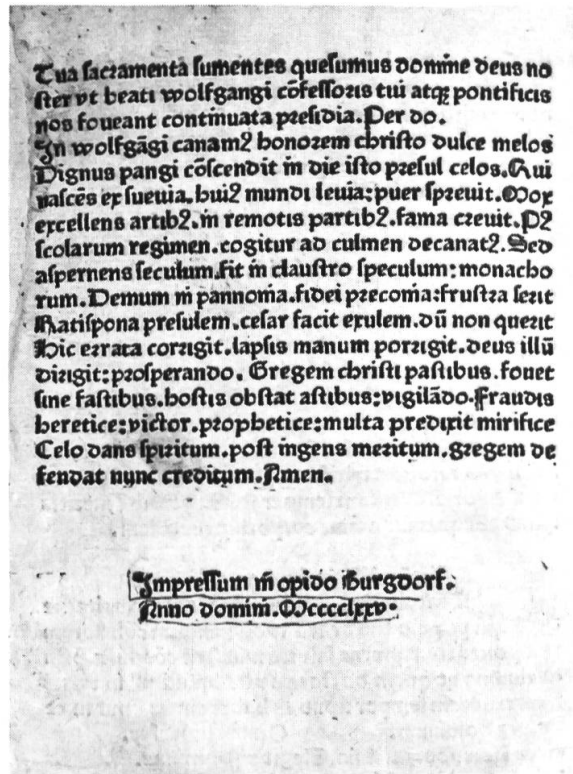 Tua sacramenta sumentes quesumus domine deus no
ster vt beati wolfgangi cōfessoris tui atqꝫ pontificis
nos foueant continuata presidia. Per do.
In wolfgāgi canamꝰ honorem christo dulce melos
Dignus pangi cōscendit in die isto presul celos. Qui
nascēs ex sueuia. huiꝰ mundi leuia: puer spreuit. Mox
excellens artibꝰ. in remotis partibꝰ. fama creuit. Pꝰ
scolarum regimen. cogitur ad culmen decanatꝰ. Sed
aspernens seculum. fit in claustro speculum: monacho
rum. Demum in pannonia. fidei preconia: frustra serit
Ratispona presulem. cesar facit exulem. dū non querit
Hic errata corrigit. lapsis manum porrigit. deus illū
dirigit: prosperando. Gregem christi pastibus. fouet
sine fastibus. hostis obstat astibus: vigilādo. Fraudis
heretice: victor. prophetice: multa predixit mirifice
Celo dans spiritum. post ingens meritum. gregem de
fendat nunc creditum. Amen.
Impressum in opido Burgdorf.
Anno domini. Mcccclxxv.